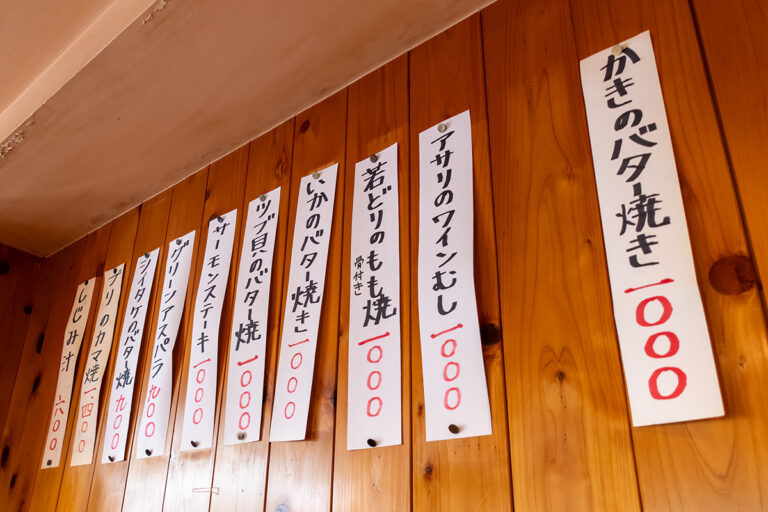 かきのバター焼き 一〇〇〇
アサリのワインむし 一〇〇〇
若どりのもも焼 一〇〇〇
骨付き
いかのバター焼き 一〇〇〇
ツブ貝のバター焼 一〇〇〇
サーモンステーキ 一〇〇〇
グリーンアスパラ 九〇〇
シイタケのバター焼 九〇〇
ブリのカマ焼 一、四〇〇
しじみ汁 六〇〇